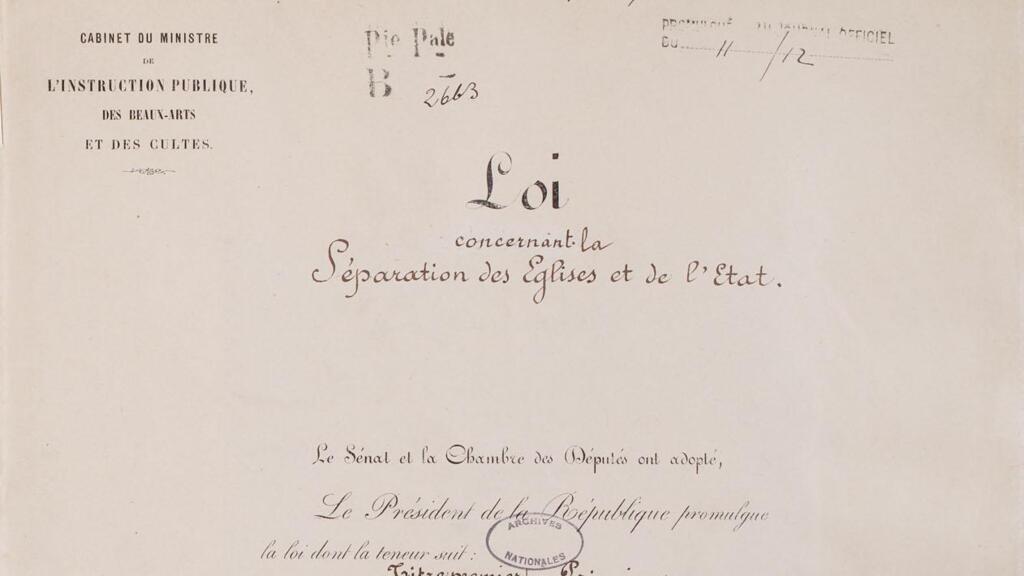 CABINET DU MINISTRE
DE
L'INSTRUCTION PUBLIQUE,
DES BEAUX-ARTS
ET DES CULTES.
Pie Pale
B 2663
PROMULGUÉ AU JOURNAL OFFICIEL
DU 11/12
Loi
concernant la
Séparation des Eglises et de l'Etat.
Le Sénat et la Chambre des Députés ont adopté,
Le Président de la République promulgue
la loi dont la teneur suit :
ARCHIVES
NATIONALES
Titre premier